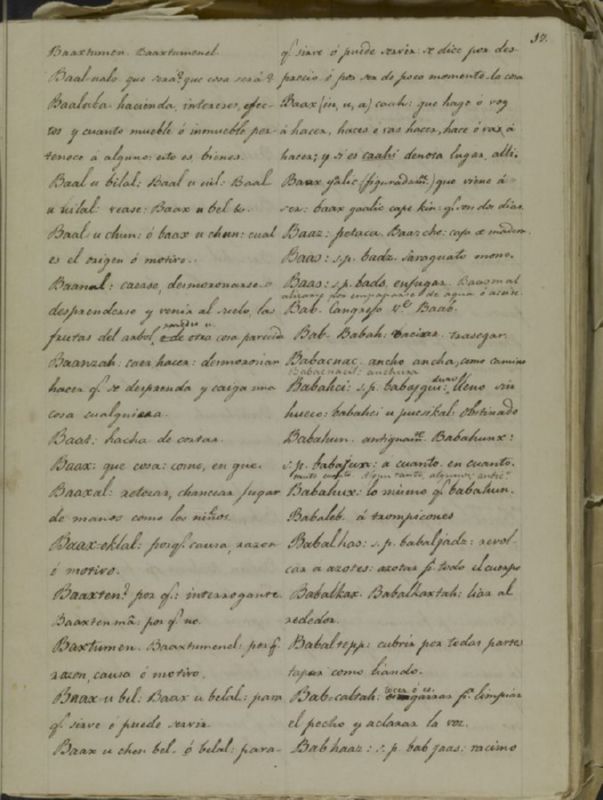 17.
Baaxtumen. Baaxtumenel.
Baal-ualo que será? que cosa será?
Baalaba hacienda, intereses, efec-
tos y cuanto mueble ó inmueble per-
tenece á alguno: esto es, bienes.
Baal u bilal: Baal u uil: Baal
u uilal vease: Baax u bel &.
Baal u chun: ó baax u chun: cual
es el origen ó motivo.
Baanal: caerse, desmoronarse ó
desprenderse y venir al suelo, las
frutas del arbol, ó de otra cosa parecida
Baanzah: caer hacer: desmoronar
hacer q.e se desprenda y caiga una
cosa cualquiera.
Baat: hacha de cortar.
Baax: que cosa: como, en que.
Baaxal: retozar, chancear jugar
de manos como los niños.
Baax-oklal: porq.e causa, razon
ó motivo.
Baaxten? por q.e: interrogante.
Baaxten má: por q.e no.
Baxtumen. Baaxtumenel: por q.e
razon, causa ó motivo.
Baax u bel: Baax u belal: para
q.e sirve ó puede servir.
Baax u chen bel. ó belal: para-
q.e sirve ó puede servir: se dice por des-
precio ó por ser de poco momento la cosa
Baax (in, u, a) caah: que hago ó voy
á hacer, haces ó vas hacer, hace ó vas á
hacer; y si es caahi denota lugar, alli.
Baax yalic (figuradam.te) que viene á
ser: baax yaalic cape kin: q.e son dos dias.
Baaz: petaca. Baazche: caja de madera.
Baas: s.p. badz. Saraguato mono.
Baas: s.p. bads. enfugar. Baasmal
aliviarse por empaparse de agua ó aceite.
Bab. Congreso V.e Baab.
Bab. Babah: vaciar. trasegar.
Babacnac. ancho ancha, como camino
Babacnacil: anchura
Babahci: s.p. babajqui: duro lleno sin
hueco: babahci u pucsikal: obstinado
Babahun. antiguam.te Babahunx:
s.p. babajun: a cuanto. en cuanto.
Babahux: lo mismo q.e babahun.
Babaleb. á trompicones
Babalhas: s.p. babaljadz: revol-
car a azotes: azotar p.r todo el cuerpo
Babalkax. Babalkaxtah: liar al
rededor.
Babaltepp: cubrir por todas partes
tapar como liando.
Bab-caltah: toser ó garrar p.a limpiar
el pecho y aclarar la voz.
Babhaaz: s.p. bab jaas: racimo